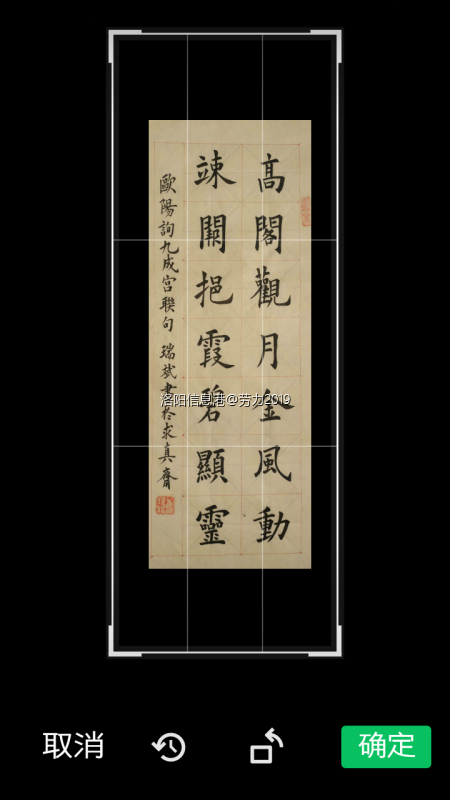 高閣觀月金風動
竦闕挹霞碧顯靈
歐陽詢九成宮聯句 瑞斌書於求真齋
洛阳信息港@劳力2019
取消
确定